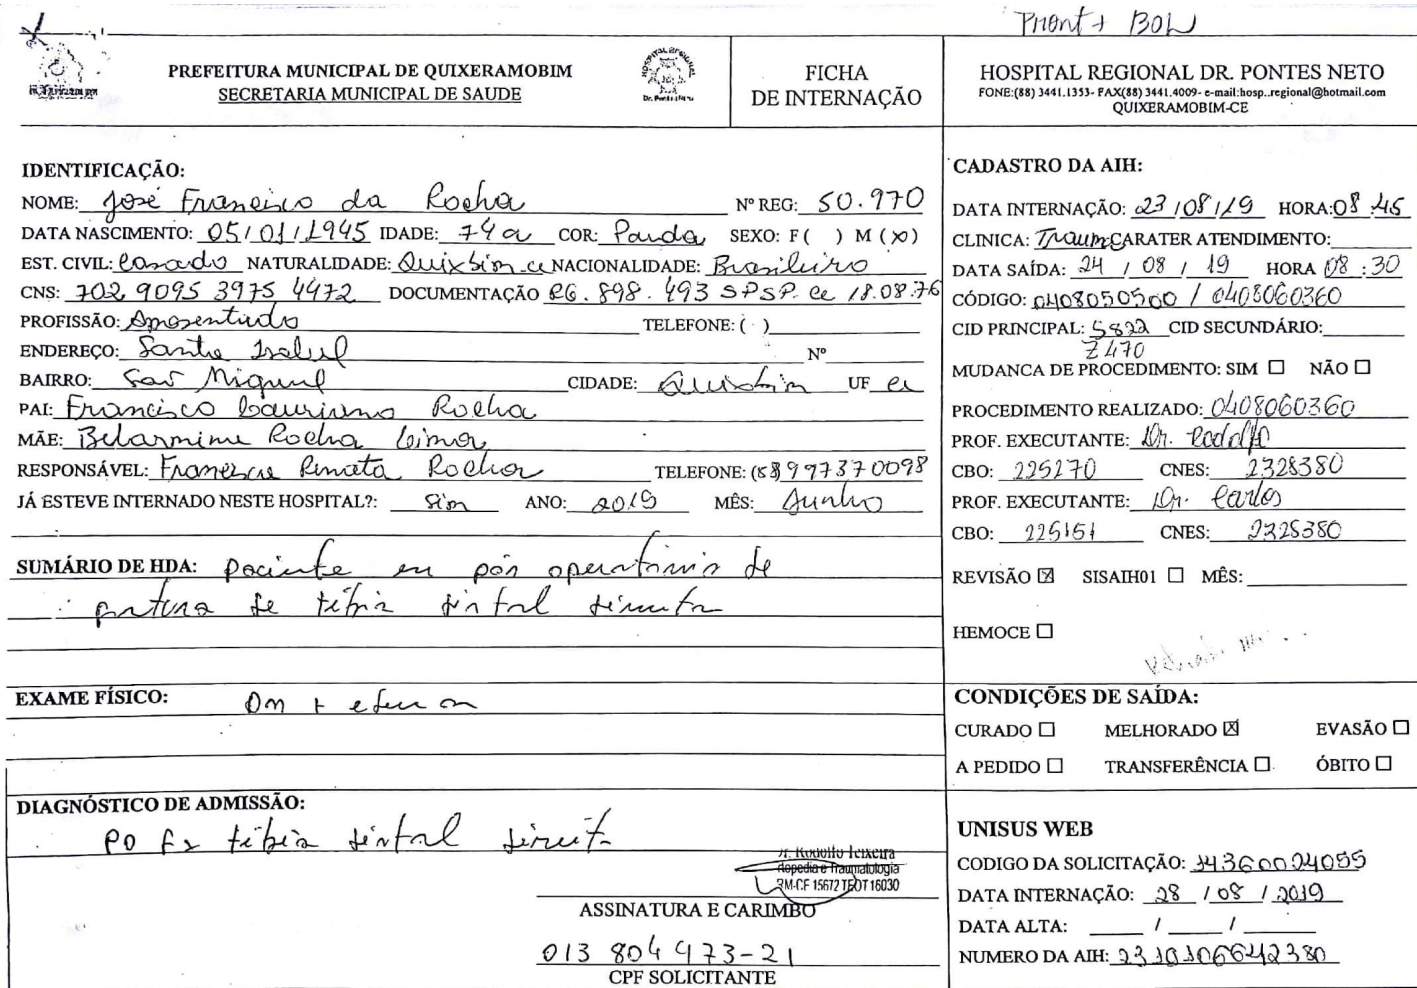 Pront + BOL
PREFEITURA MUNICIPAL DE QUIXERAMOBIM
SECRETARIA MUNICIPAL DE SAUDE
HOSPITAL REGIONAL
Dr. Pontes Neto
FICHA
DE INTERNAÇÃO
HOSPITAL REGIONAL DR. PONTES NETO
FONE:(88) 3441.1353- FAX(88) 3441.4009- e-mail:hosp..regional@hotmail.com
QUIXERAMOBIM-CE
IDENTIFICAÇÃO:
NOME: José Francisco da Rocha Nº REG: 50.970
DATA NASCIMENTO: 05/01/1945 IDADE: 74a COR: Parda SEXO: F( ) M (x)
EST. CIVIL: Casado NATURALIDADE: Quixbim-ce NACIONALIDADE: Brasileiro
CNS: 702 9095 3975 4472 DOCUMENTAÇÃO RG. 898.493 SPSP. ce 18.08.76
PROFISSÃO: Aposentado TELEFONE: ( )
ENDEREÇO: Santa Isabel Nº
BAIRRO: São Miguel CIDADE: Quixbim UF ce
PAI: Francisco Rocha
MÃE: Belarmina Rocha Lima
RESPONSÁVEL: Francisca Renata Rocha TELEFONE: (88) 997370098
JÁ ESTEVE INTERNADO NESTE HOSPITAL?: Sim ANO: 2019 MÊS: Junho
SUMÁRIO DE HDA: Paciente em pós operatório de
fratura de tíbia distal direita
EXAME FÍSICO: Dm + edema
DIAGNÓSTICO DE ADMISSÃO:
PO Fx tíbia distal direita
Dr. Rodolfo Teixeira
Ortopedia e Traumatologia
CRM-CE 15672 TEOT 16030
ASSINATURA E CARIMBO
013 804 973-21
CPF SOLICITANTE
CADASTRO DA AIH:
DATA INTERNAÇÃO: 23/08/19 HORA: 08:45
CLINICA: Traum CARATER ATENDIMENTO:
DATA SAÍDA: 24 / 08 / 19 HORA 08:30
CÓDIGO: 0408050500 / 0408060360
CID PRINCIPAL: S822 CID SECUNDÁRIO:
Z470
MUDANCA DE PROCEDIMENTO: SIM ☐ NÃO ☐
PROCEDIMENTO REALIZADO: 0408060360
PROF. EXECUTANTE: Dr. Rodolfo
CBO: 225270 CNES: 2328380
PROF. EXECUTANTE: Dr. Carlos
CBO: 225151 CNES: 2328380
REVISÃO ☒ SISAIH01 ☐ MÊS:
HEMOCE ☐
CONDIÇÕES DE SAÍDA:
CURADO ☐ MELHORADO ☒ EVASÃO ☐
A PEDIDO ☐ TRANSFERÊNCIA ☐ ÓBITO ☐
UNISUS WEB
CODIGO DA SOLICITAÇÃO: 14360024055
DATA INTERNAÇÃO: 28 / 08 / 2019
DATA ALTA: / /
NUMERO DA AIH: 2319106642380